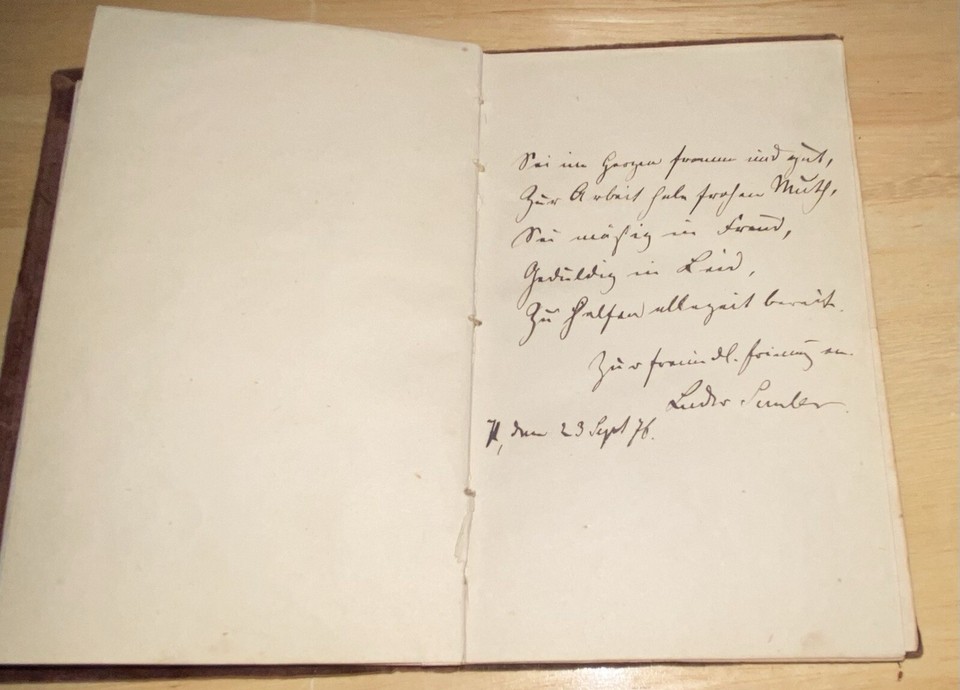 Sei im Herzen fromm und gut,
Zur Arbeit habe frohen Muth,
Sei mäßig in Freud,
Geduldig in Leid,
Zu Helfen allezeit bereit.
Zur freundl. Erinnrg an
den 23 Sept 76.